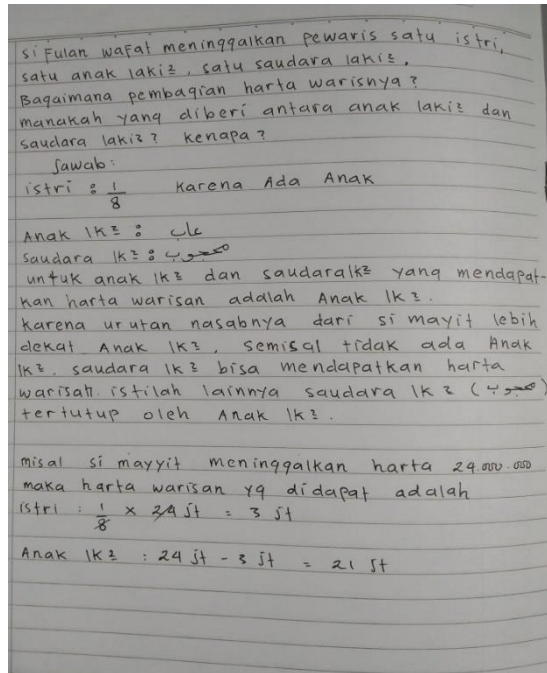 si Fulan wafat meninggalkan pewaris satu istri,
satu anak laki2, satu saudara laki2.
Bagaimana pembagian harta warisnya?
manakah yang diberi antara anak laki2 dan
saudara laki2? kenapa?
Jawab:
istri : 1/8 Karena Ada Anak
Anak lk2 :
Saudara lk2 : محجوب
untuk anak lk2 dan saudara lk2 yang mendapat-
kan harta warisan adalah Anak lk2.
karena urutan nasabnya dari si mayit lebih
dekat Anak lk2, semisal tidak ada Anak
lk2. saudara lk2 bisa mendapatkan harta
warisah. istilah lainnya saudara lk2 (محجوب)
tertutup oleh Anak lk2.
misal si mayyit meninggalkan harta 24.000.000
maka harta warisan yg didapat adalah
istri : 1/8 x 24 jt = 3 jt
Anak lk2 : 24 jt - 3 jt = 21 jt